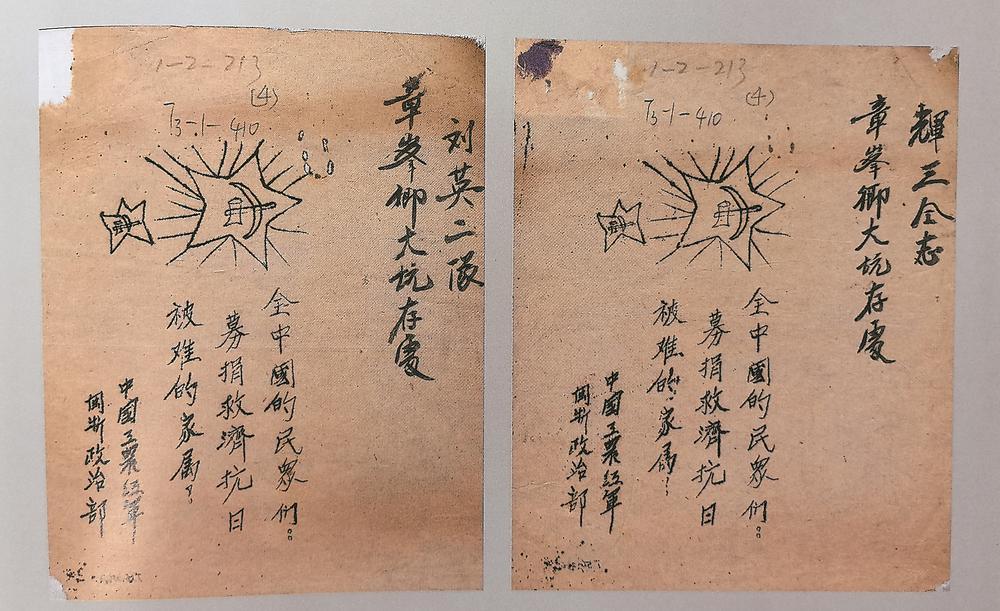 1-2-213
(4)
T3-1-410
刘英二队
章峯鄉大坑存處
全中國的民眾们：
募捐救濟抗日
被难的家属！
中國工農红軍
政治部
1-2-213
(4)
T3-1-410
輝三仝志
章峯鄉大坑存處
全中國的民眾们：
募捐救濟抗日
被难的家属！
中國工農红軍
政治部